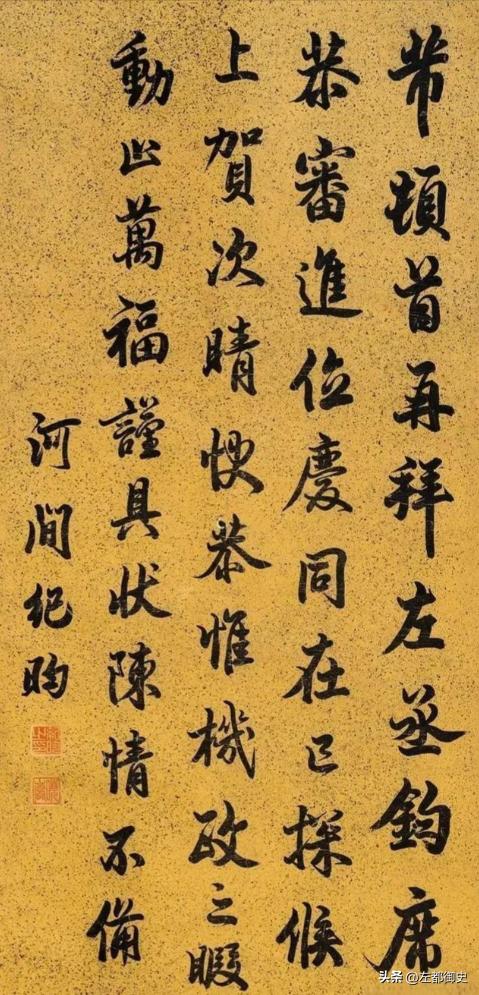 芾頓首再拜左丞鈞席
恭審進位慶同在已探候
上賀次晴快恭惟機政之暇
動止萬福謹具狀陳情不備
河間紀昀
头条 @左都御史